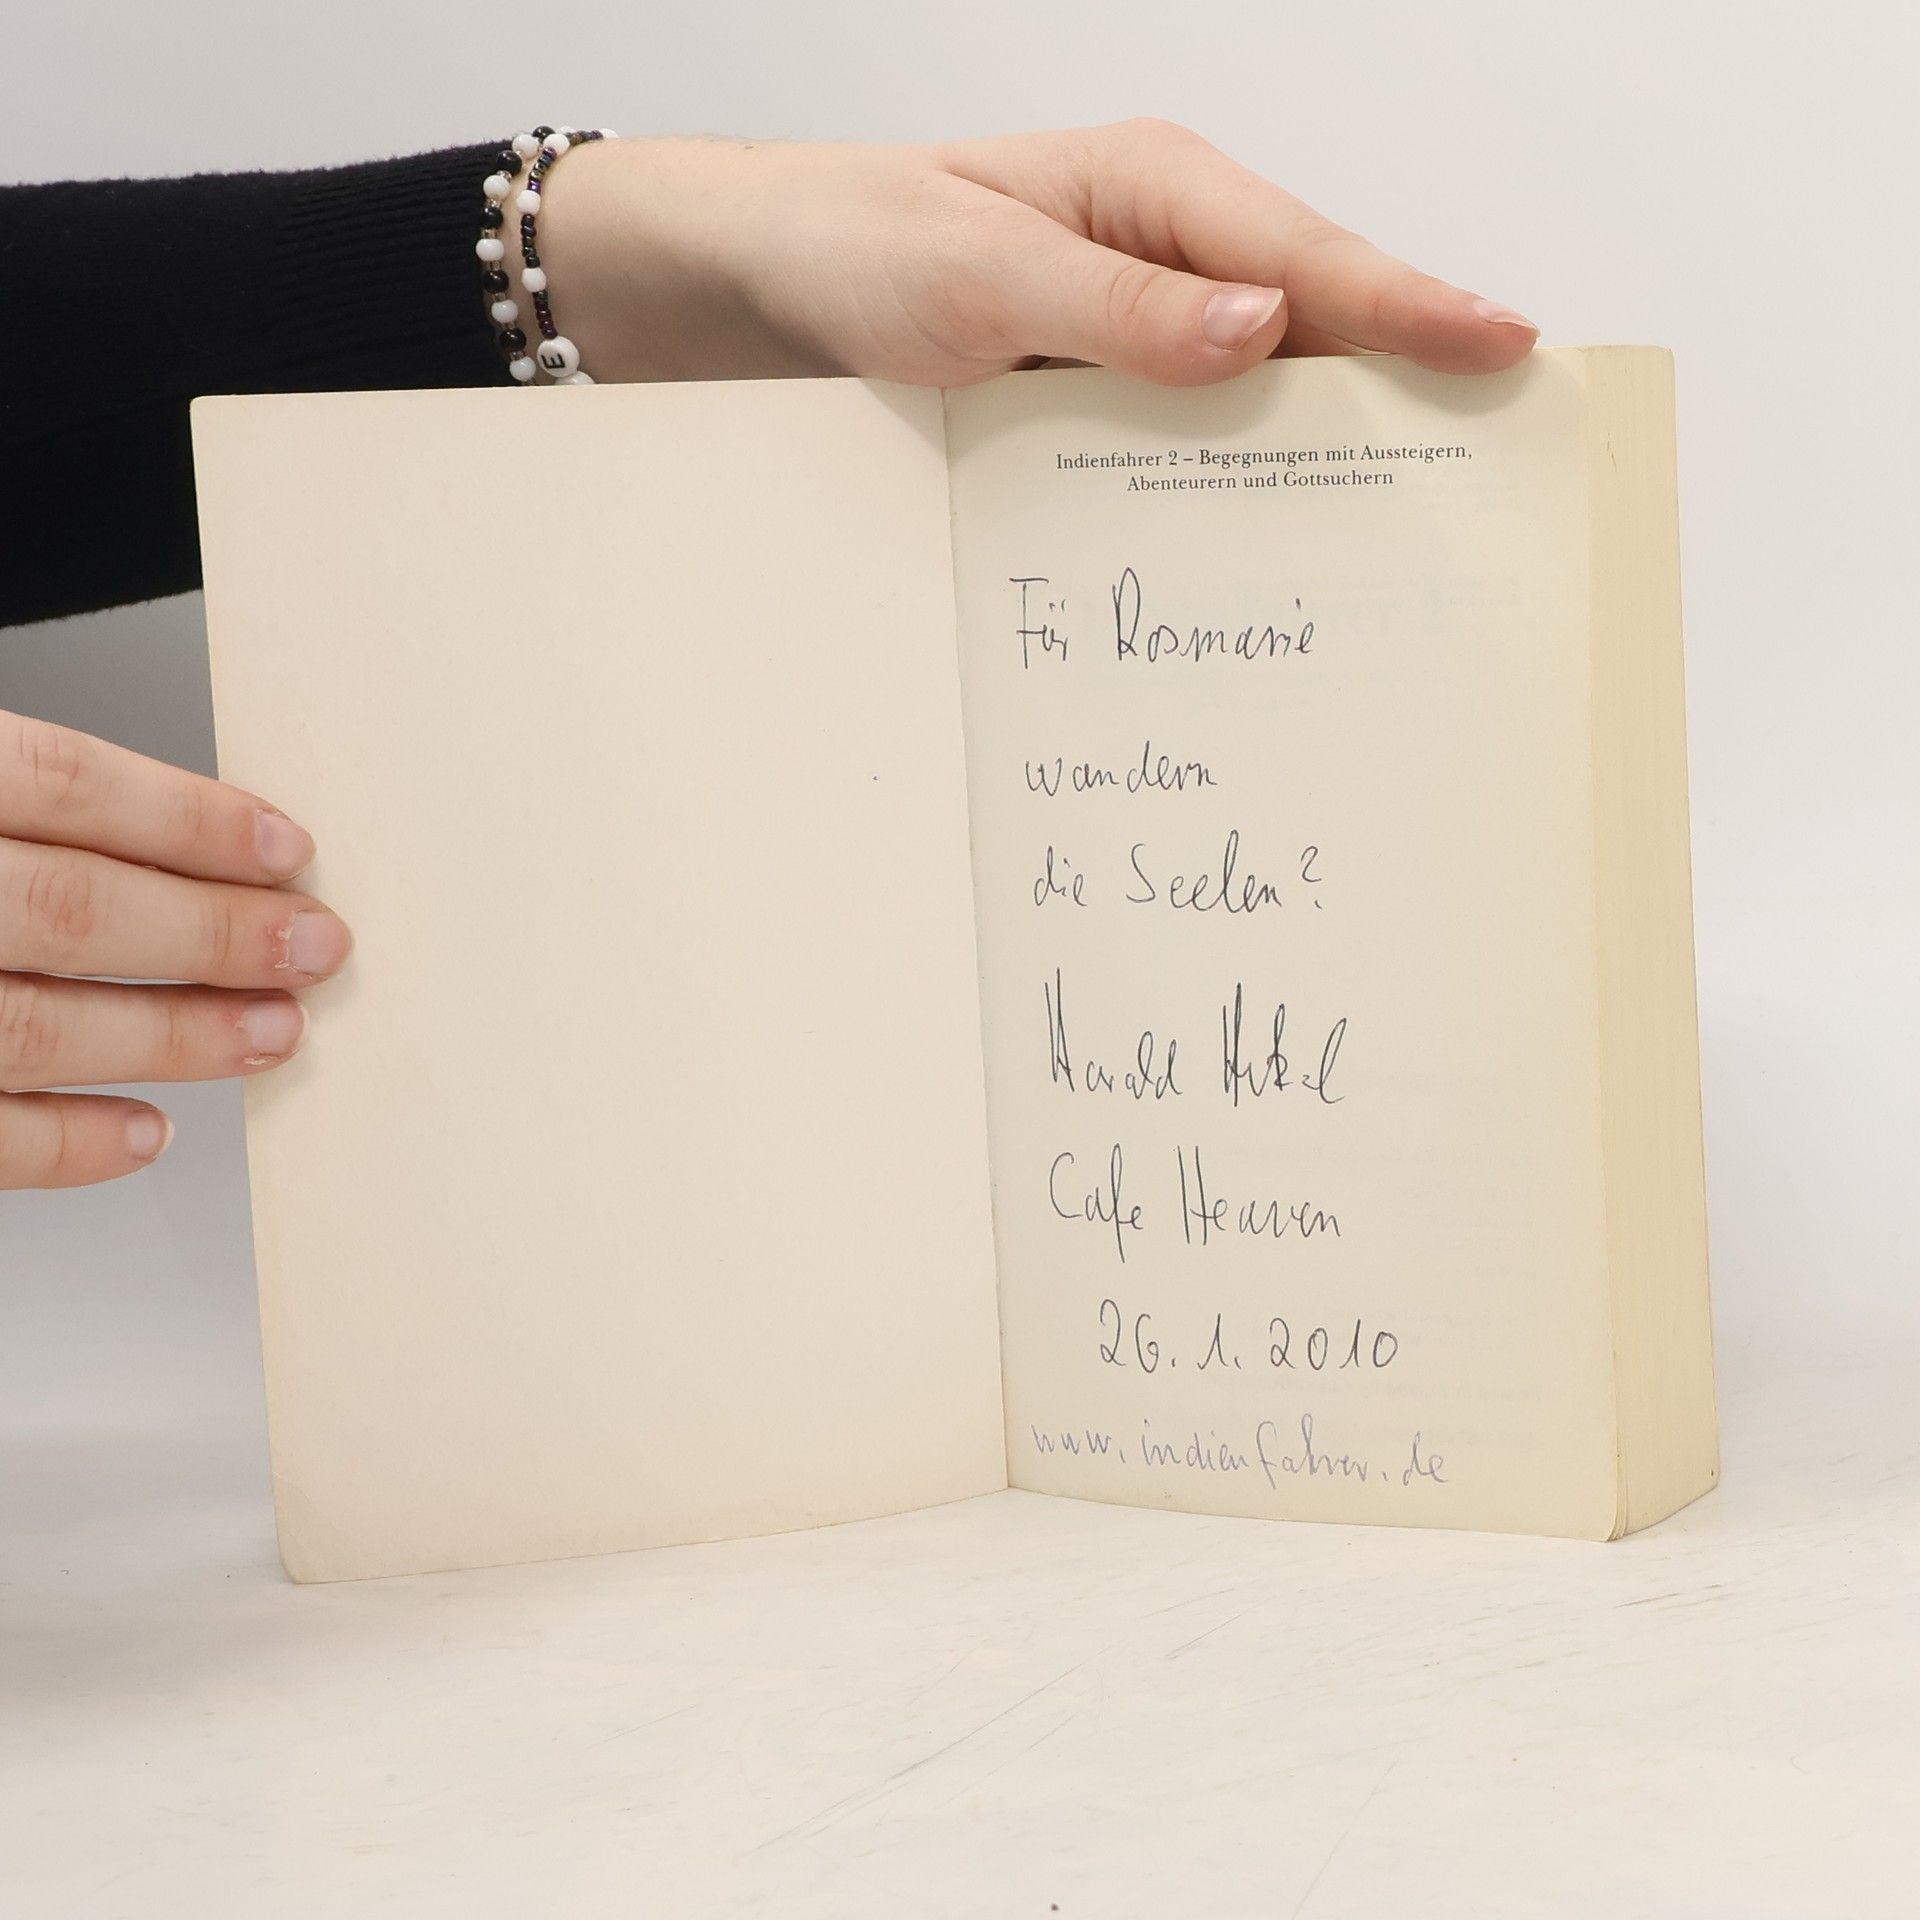 Indienfahrer 2 – Begegnungen mit Aussteigern,
Abenteurern und Gottsuchern
Für Rosmarie
wandern
die Seelen?
Harald
Cafe Heaven
26. 1. 2010
www.indienfahrer.de
E